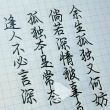 余生孤独又何妨
倘若深情被辜负
孤独本是常态
逢人不必言深